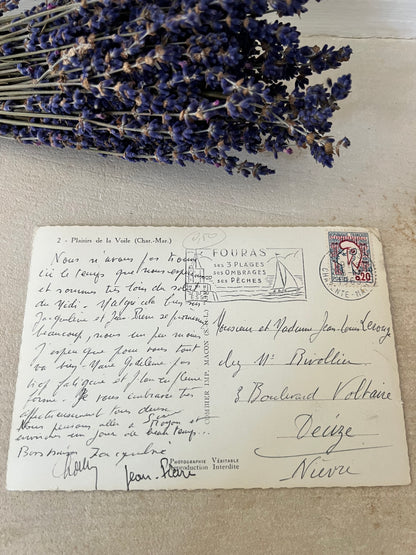 2 - Plaisirs de la Voile (Char.-Mar.)
Nous n'avons pas trouvé
ici le temps que nous espérions
et sommes très loin du soleil du
Midi. Malgré la brume
Jacqueline et Jean Pierre se promènent
beaucoup, nous un peu moins
J'espère que pour vous tout
va bien, Marie Ghislaine pas
trop fatiguée et Jean en pleine
forme. Je vous embrasse très
affectueusement tous deux
Nous pensons aller à Royan et
environ un jour de beau temps...
Bons baisers Jacqueline
Jean-Pierre
COMBIER IMP. MACON (S.-&-L.)
PHOTOGRAPHIE VÉRITABLE
Reproduction Interdite
FOURAS
SES 3 PLAGES
SES OMBRAGES
SES PÊCHES
0,20
Monsieur et Madame Jean Louis
chez Mr
3 Boulevard Voltaire
Decize
Nièvre